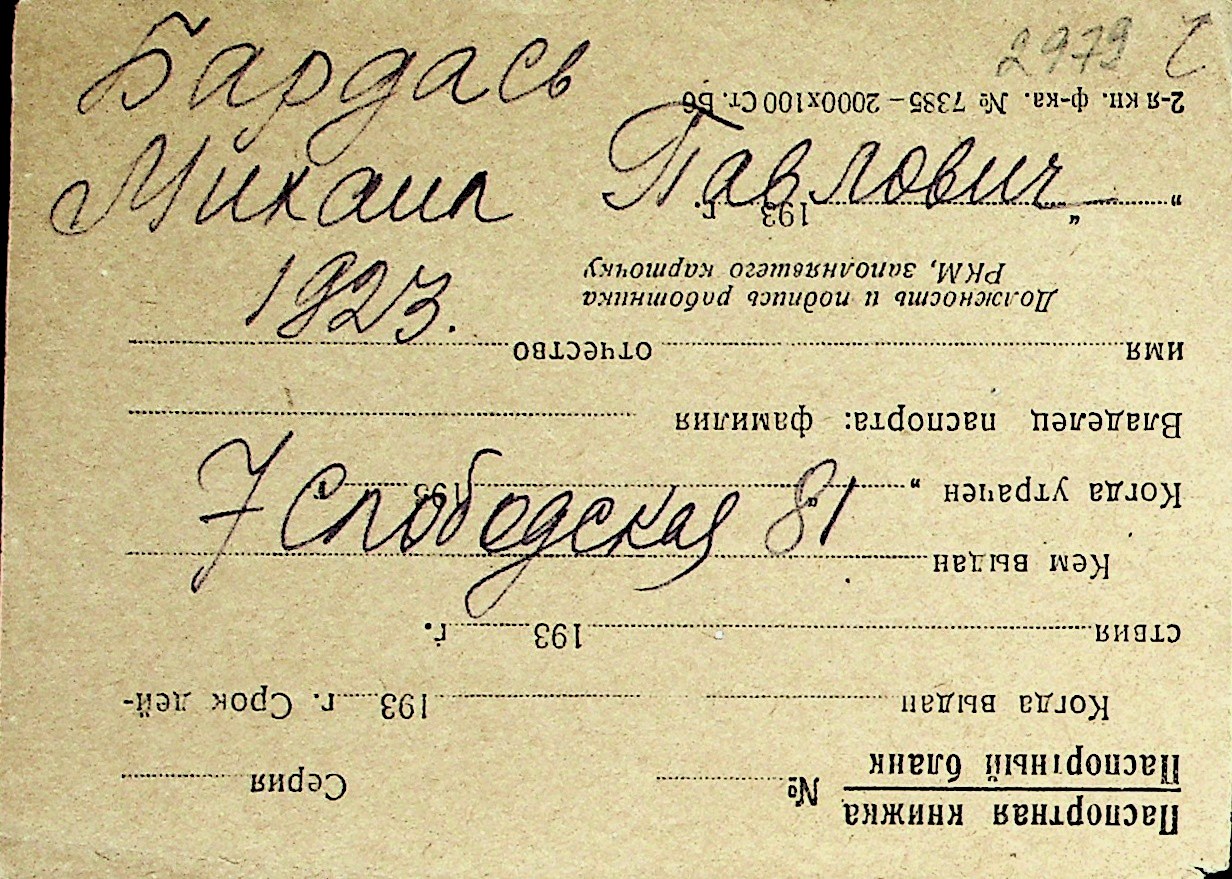 2979
Бардась
Михаил Павлович
1923.
7 Слободская 81
Паспортная книжка
Паспортный бланк
№ Серия
Когда выдан 193 г. Срок дей-
ствия 193 г.
Кем выдан
Когда утрачен „ “ 193
Владелец паспорта: фамилия
имя отчество
Должность и подпись работника
РКМ, заполнявшего карточку
„ “ 193 г.
2-я кн. ф-ка. № 7385 – 2000х100 Ст. Бб